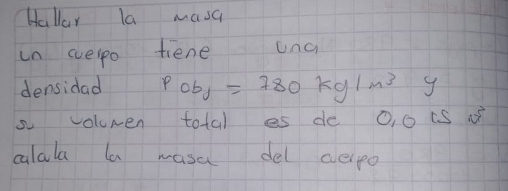 Hallar la masa
un cuerpo tiene una
densidad ρ obj = 780 kg/m³ y
su volumen total es de 0,0 m³
calala la masa del cuerpo